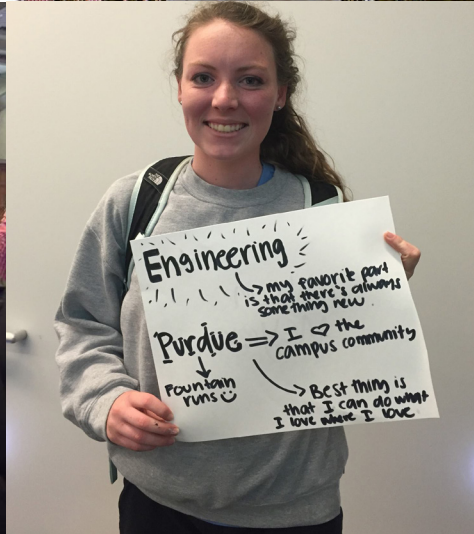 THE NORTH FACE
Engineering
my favorite part
is that there's always
something new
Purdue => I ♡ the
campus community
Fountain
runs ☺
Best thing is
that I can do what
I love where I love